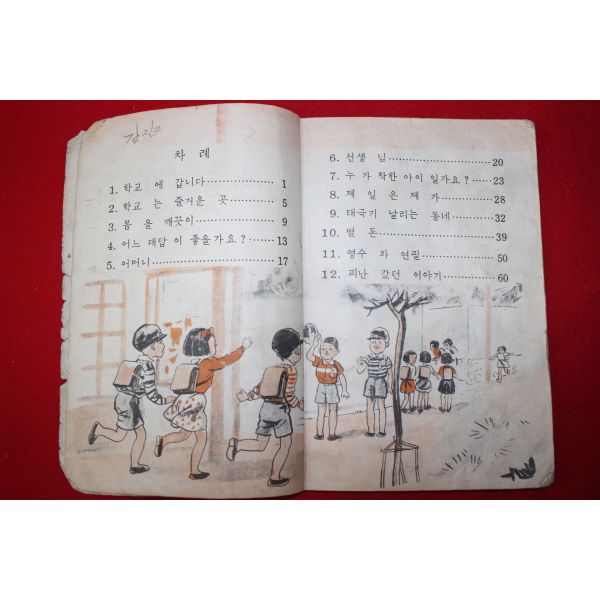 김진구
차 례
1. 학교 에 갑니다 1
2. 학교 는 즐거운 곳 5
3. 몸 을 깨끗이 9
4. 어느 대답 이 좋을가요? 13
5. 어머니 17
6. 선생 님 20
7. 누 가 착한 아이 일가요? 23
8. 제 일 은 제 가 28
9. 태극기 날리는 동네 32
10. 벌 돈 39
11. 영수 와 연필 50
12. 피난 갔던 이야기 60